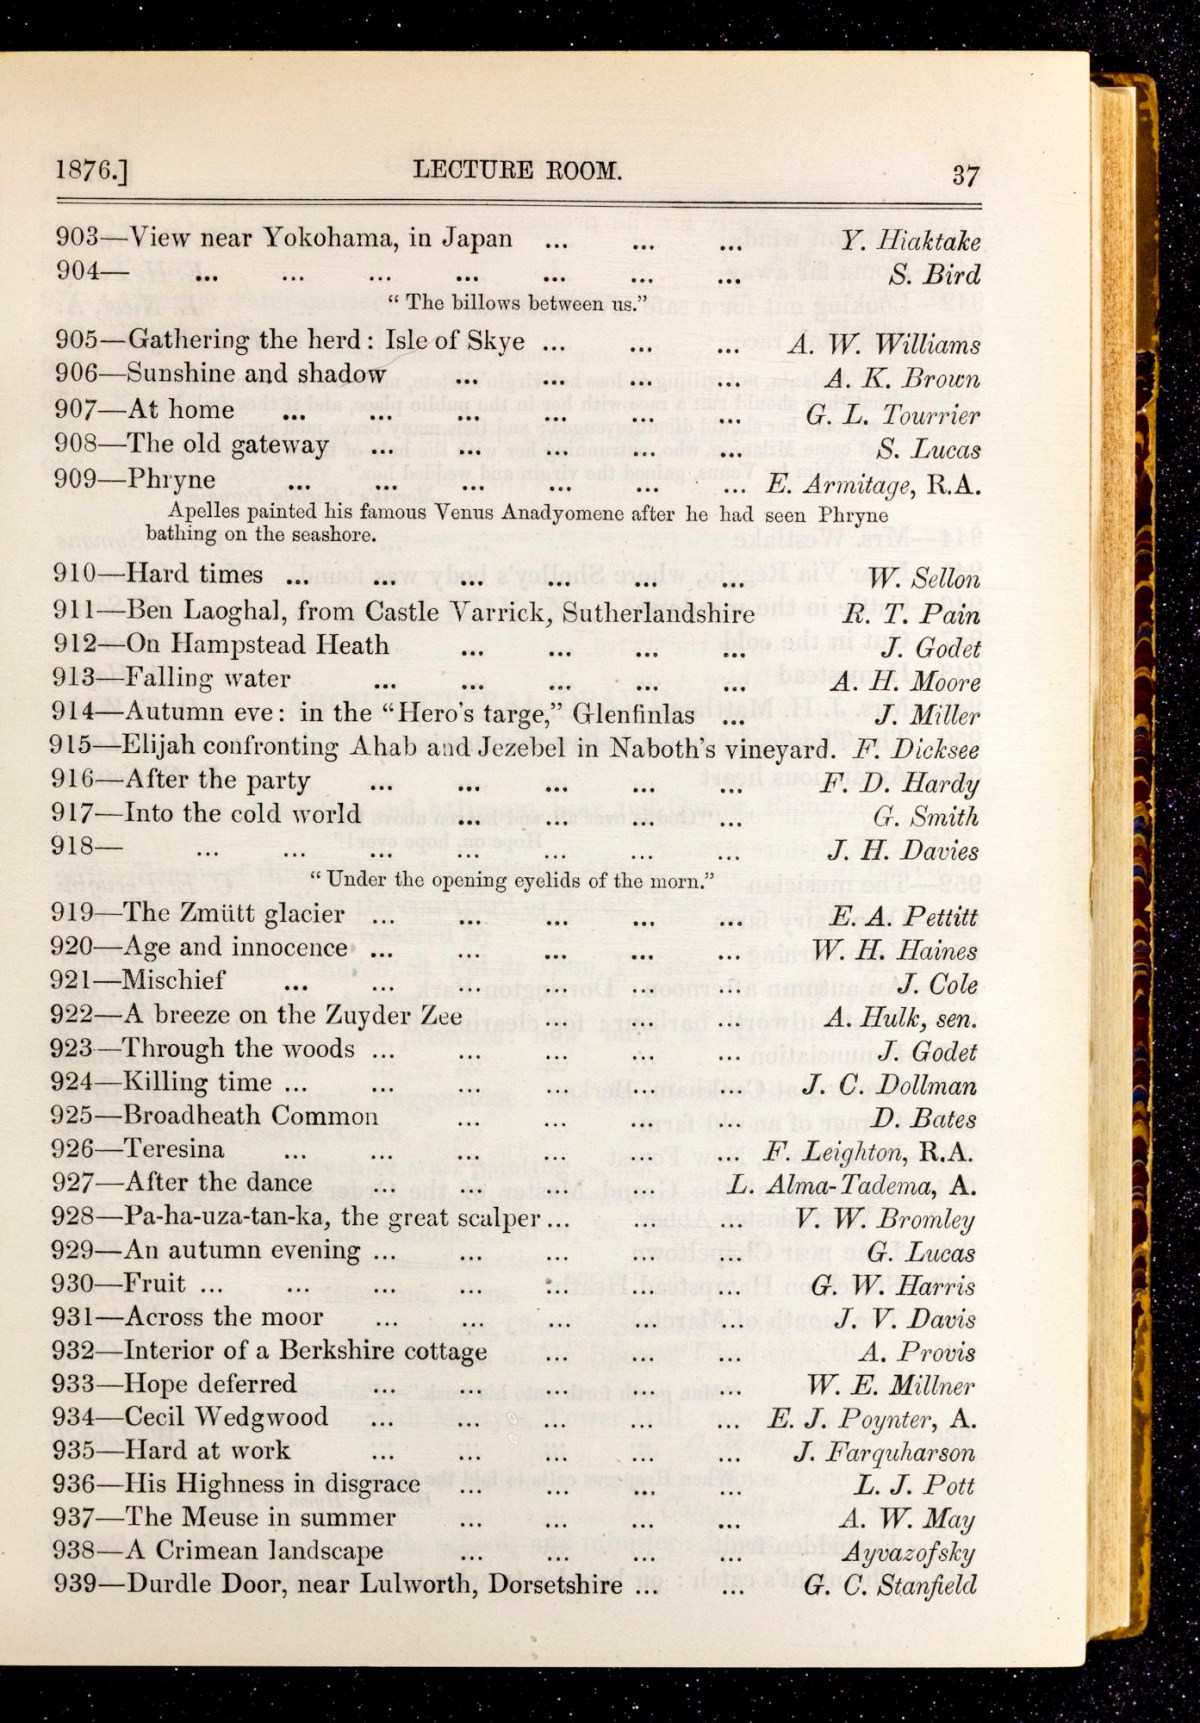 1876.] LECTURE ROOM. 37
903—View near Yokohama, in Japan ... ... ... Y. Hiaktake
904— ... ... ... ... ... ... ... S. Bird
“ The billows between us.”
905—Gathering the herd : Isle of Skye ... ... ... A. W. Williams
906—Sunshine and shadow ... ... ... ... A. K. Brown
907—At home ... ... ... ... ... ... G. L. Tourrier
908—The old gateway ... ... ... ... ... S. Lucas
909—Phryne ... ... ... ... ... ... E. Armitage, R.A.
Apelles painted his famous Venus Anadyomene after he had seen Phryne
bathing on the seashore.
910—Hard times ... ... ... ... ... ... W. Sellon
911—Ben Laoghal, from Castle Varrick, Sutherlandshire R. T. Pain
912—On Hampstead Heath ... ... ... ... J. Godet
913—Falling water ... ... ... ... ... A. H. Moore
914—Autumn eve : in the “Hero’s targe,” Glenfinlas ... J. Miller
915—Elijah confronting Ahab and Jezebel in Naboth’s vineyard. F. Dicksee
916—After the party ... ... ... ... ... F. D. Hardy
917—Into the cold world ... ... ... ... G. Smith
918— ... ... ... ... ... ... ... J. H. Davies
“ Under the opening eyelids of the morn.”
919—The Zmütt glacier ... ... ... ... ... E. A. Pettitt
920—Age and innocence ... ... ... ... ... W. H. Haines
921—Mischief ... ... ... ... ... ... J. Cole
922—A breeze on the Zuyder Zee ... ... ... A. Hulk, sen.
923—Through the woods ... ... ... ... ... J. Godet
924—Killing time ... ... ... ... ... ... J. C. Dollman
925—Broadheath Common ... ... ... ... D. Bates
926—Teresina ... ... ... ... ... ... F. Leighton, R.A.
927—After the dance ... ... ... ... L. Alma-Tadema, A.
928—Pa-ha-uza-tan-ka, the great scalper ... ... ... V. W. Bromley
929—An autumn evening ... ... ... ... ... G. Lucas
930—Fruit ... ... ... ... ... ... ... G. W. Harris
931—Across the moor ... ... ... ... ... J. V. Davis
932—Interior of a Berkshire cottage ... ... ... A. Provis
933—Hope deferred ... ... ... ... ... W. E. Millner
934—Cecil Wedgwood ... ... ... ... ... E. J. Poynter, A.
935—Hard at work ... ... ... ... ... J. Farquharson
936—His Highness in disgrace ... ... ... ... L. J. Pott
937—The Meuse in summer ... ... ... ... A. W. May
938—A Crimean landscape ... ... ... ... Ayvazofsky
939—Durdle Door, near Lulworth, Dorsetshire ... ... G. C. Stanfield